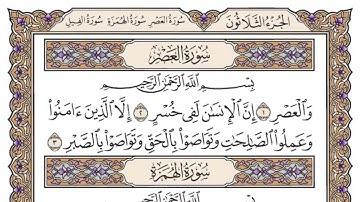 الجزء الثلاثون سورة العصر سورة الهمزة سورة الفيل
سورة العصر
بسم الله الرحمن الرحيم
وَالْعَصْرِ ١ إِنَّ الْإِنسَٰنَ لَفِى خُسْرٍ ٢ إِلَّا الَّذِينَ ءَامَنُوا۟
وَعَمِلُوا۟ الصَّٰلِحَٰتِ وَتَوَاصَوْا۟ بِالْحَقِّ وَتَوَاصَوْا۟ بِالصَّبْرِ ٣
سورة الهمزة
بسم الله الرحمن الرحيم